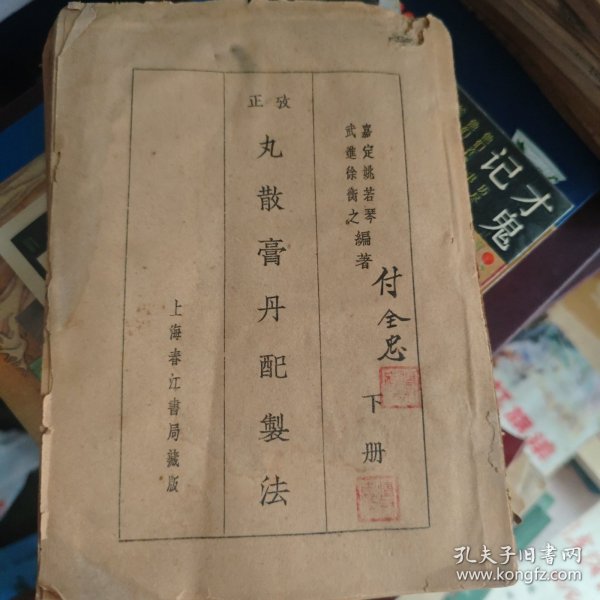 嘉定姚若琴
武進徐衡之編著
下册
付全忠
攷正
丸散膏丹配製法
上海春江書局藏版
才鬼
记
孔夫子旧书网
www.kongfz.com